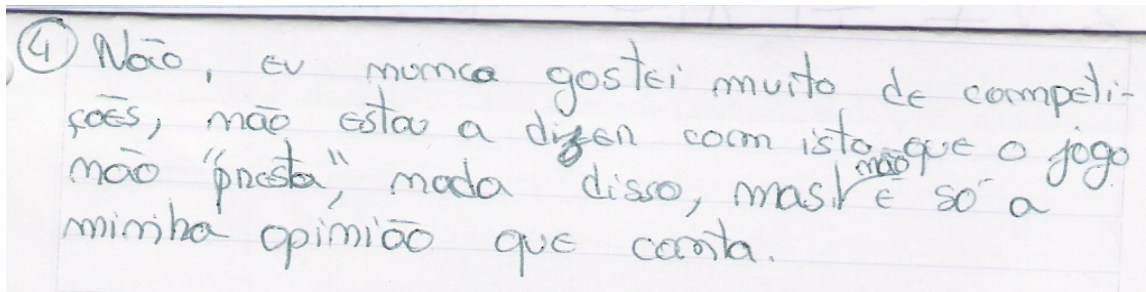 ④ Não, eu nunca gostei muito de competi-
ções, não estou a dizer com isto que o jogo
não "presta", nada disso, mas não é só a
minha opinião que conta.